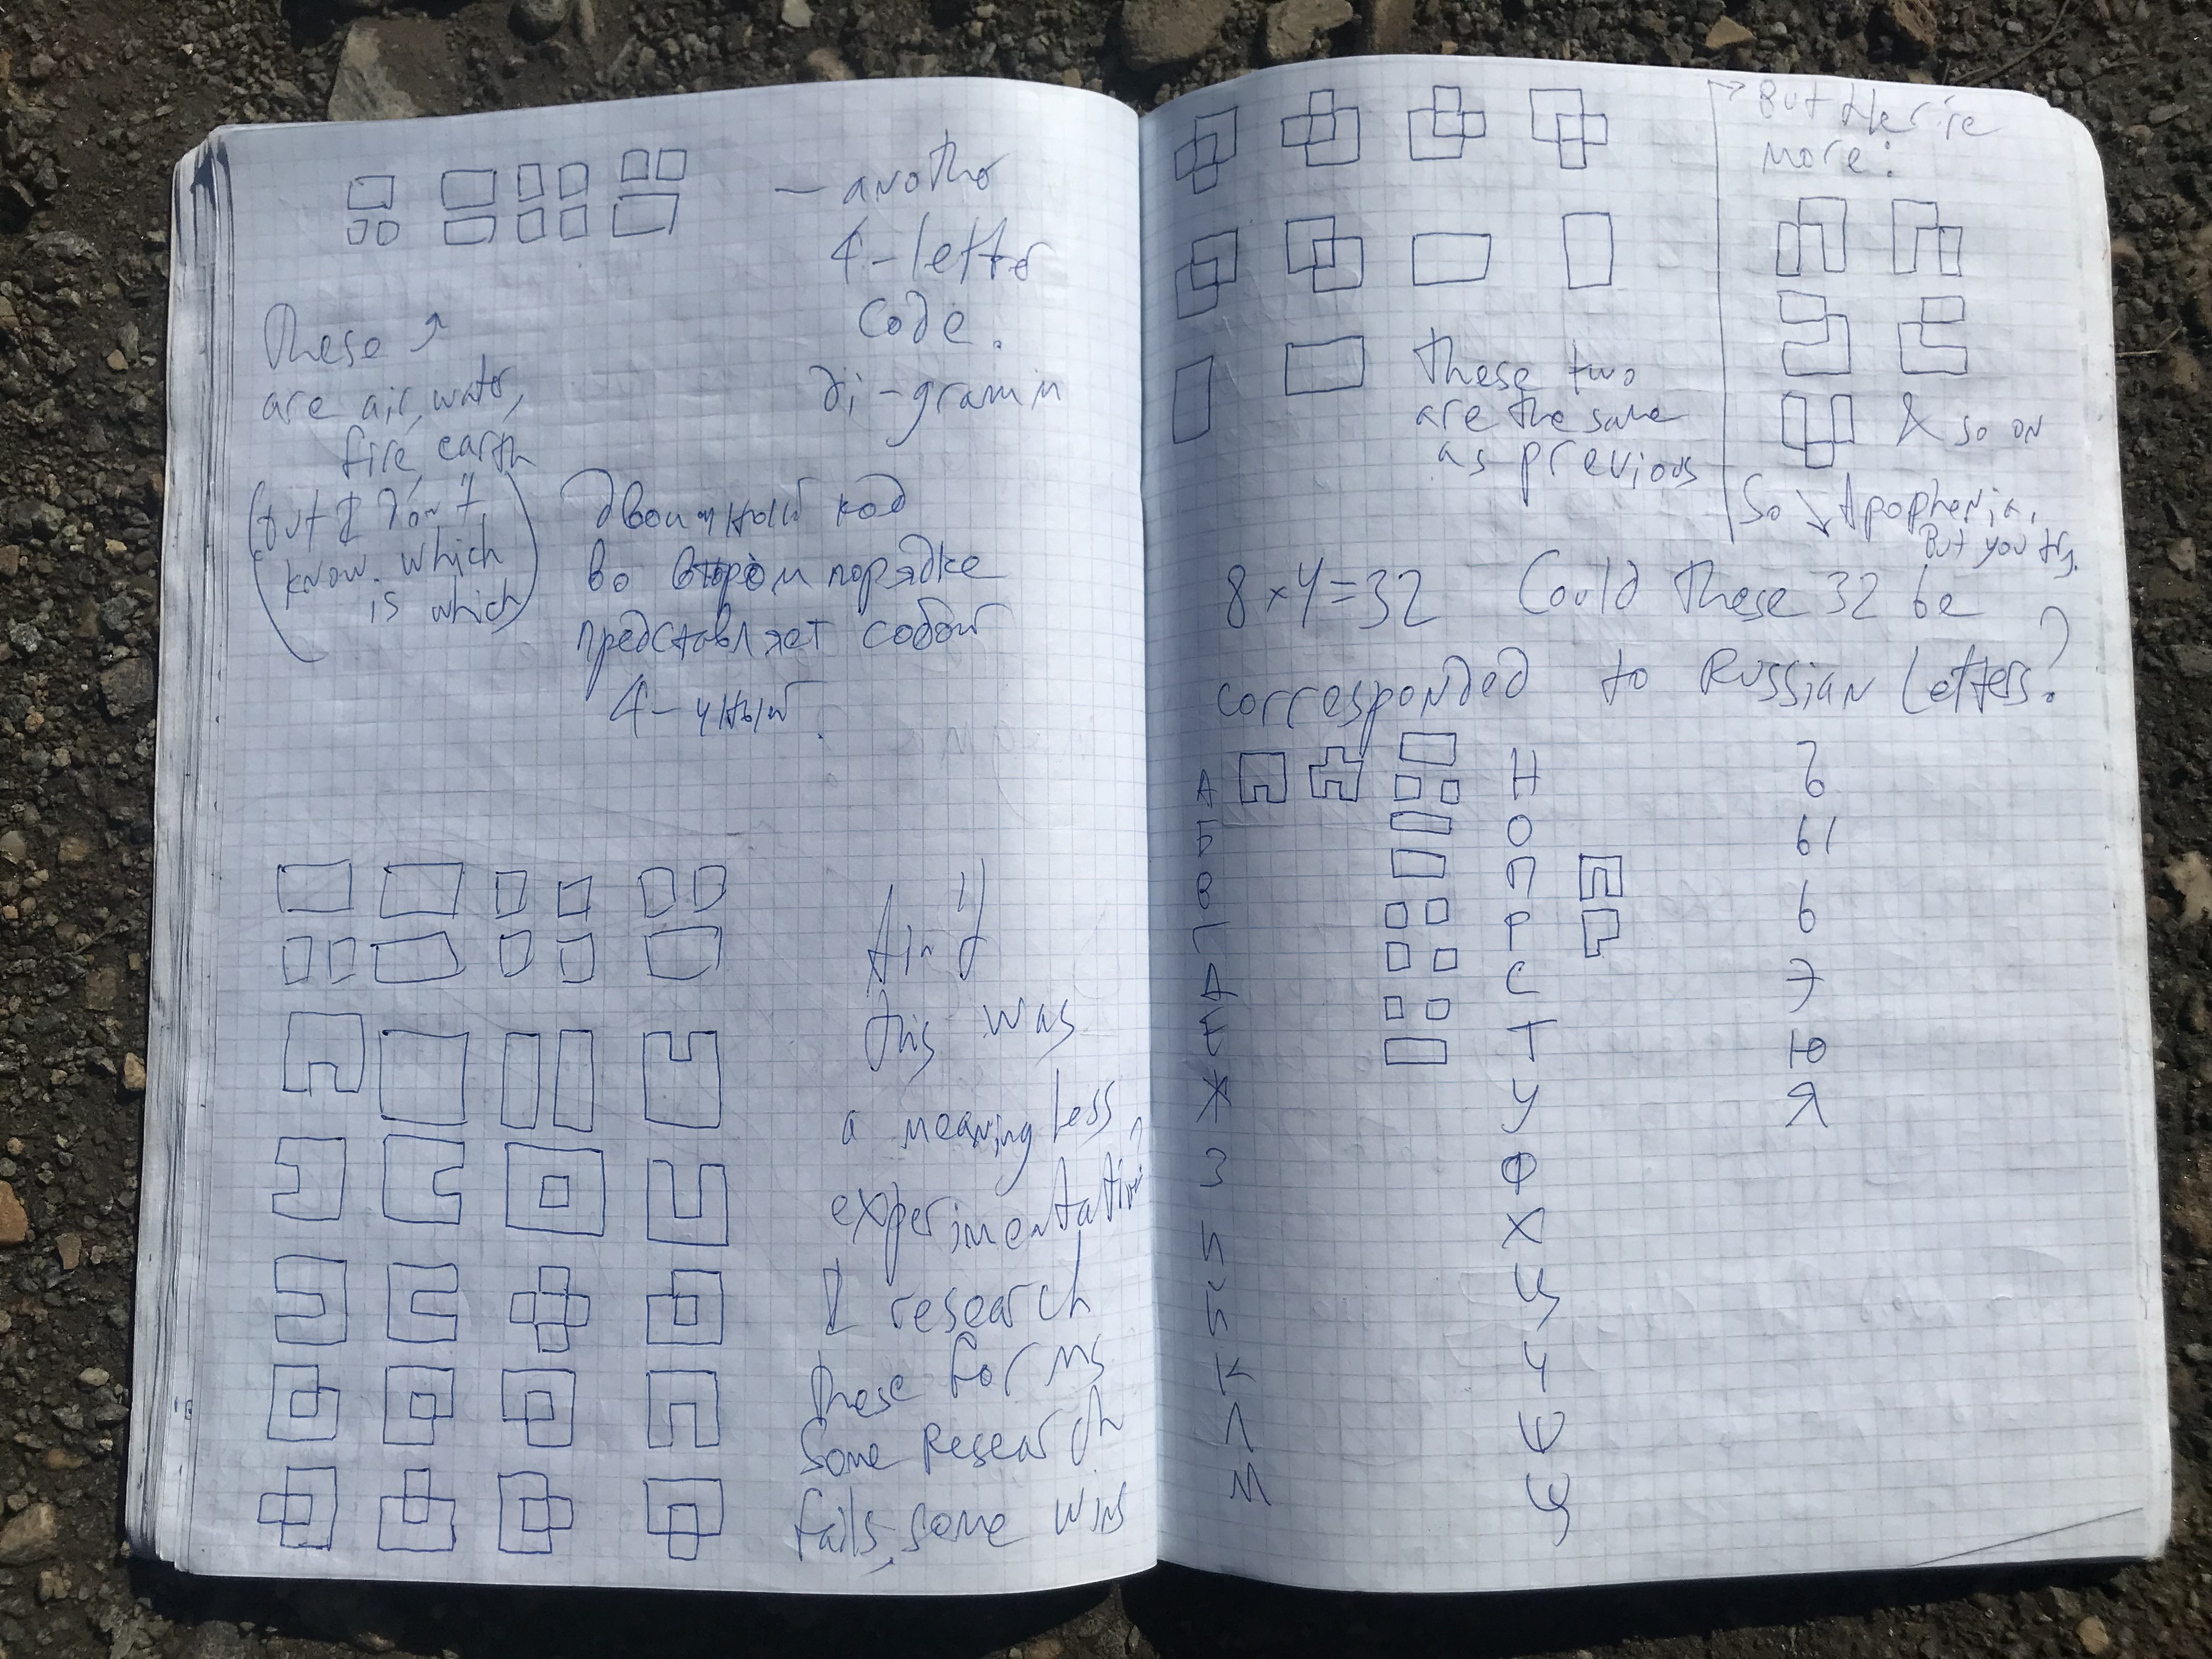 — another
4-letter
code.
di-gramm
These ↗
are air, water,
fire, earth
(but I don't
know which
is which)
Двоичный код
во втором порядке
представляет собой
4-чный
And
this was
a meaning less?
experimentation
I research
these forms
Some research
fails, some wins
These two
are the same
as previous
But there're
more!
& so on
So → Apophenia,
but you try.
8 × 4 = 32 Could these 32 be
corresponded to Russian Letters?
А Н Ъ
Б О Ы
В П Ь
Г Р Э
Д С Ю
Е Т Я
Ж У
З Ф
И Х
Й Ц
К Ч
Л Ш
М Щ